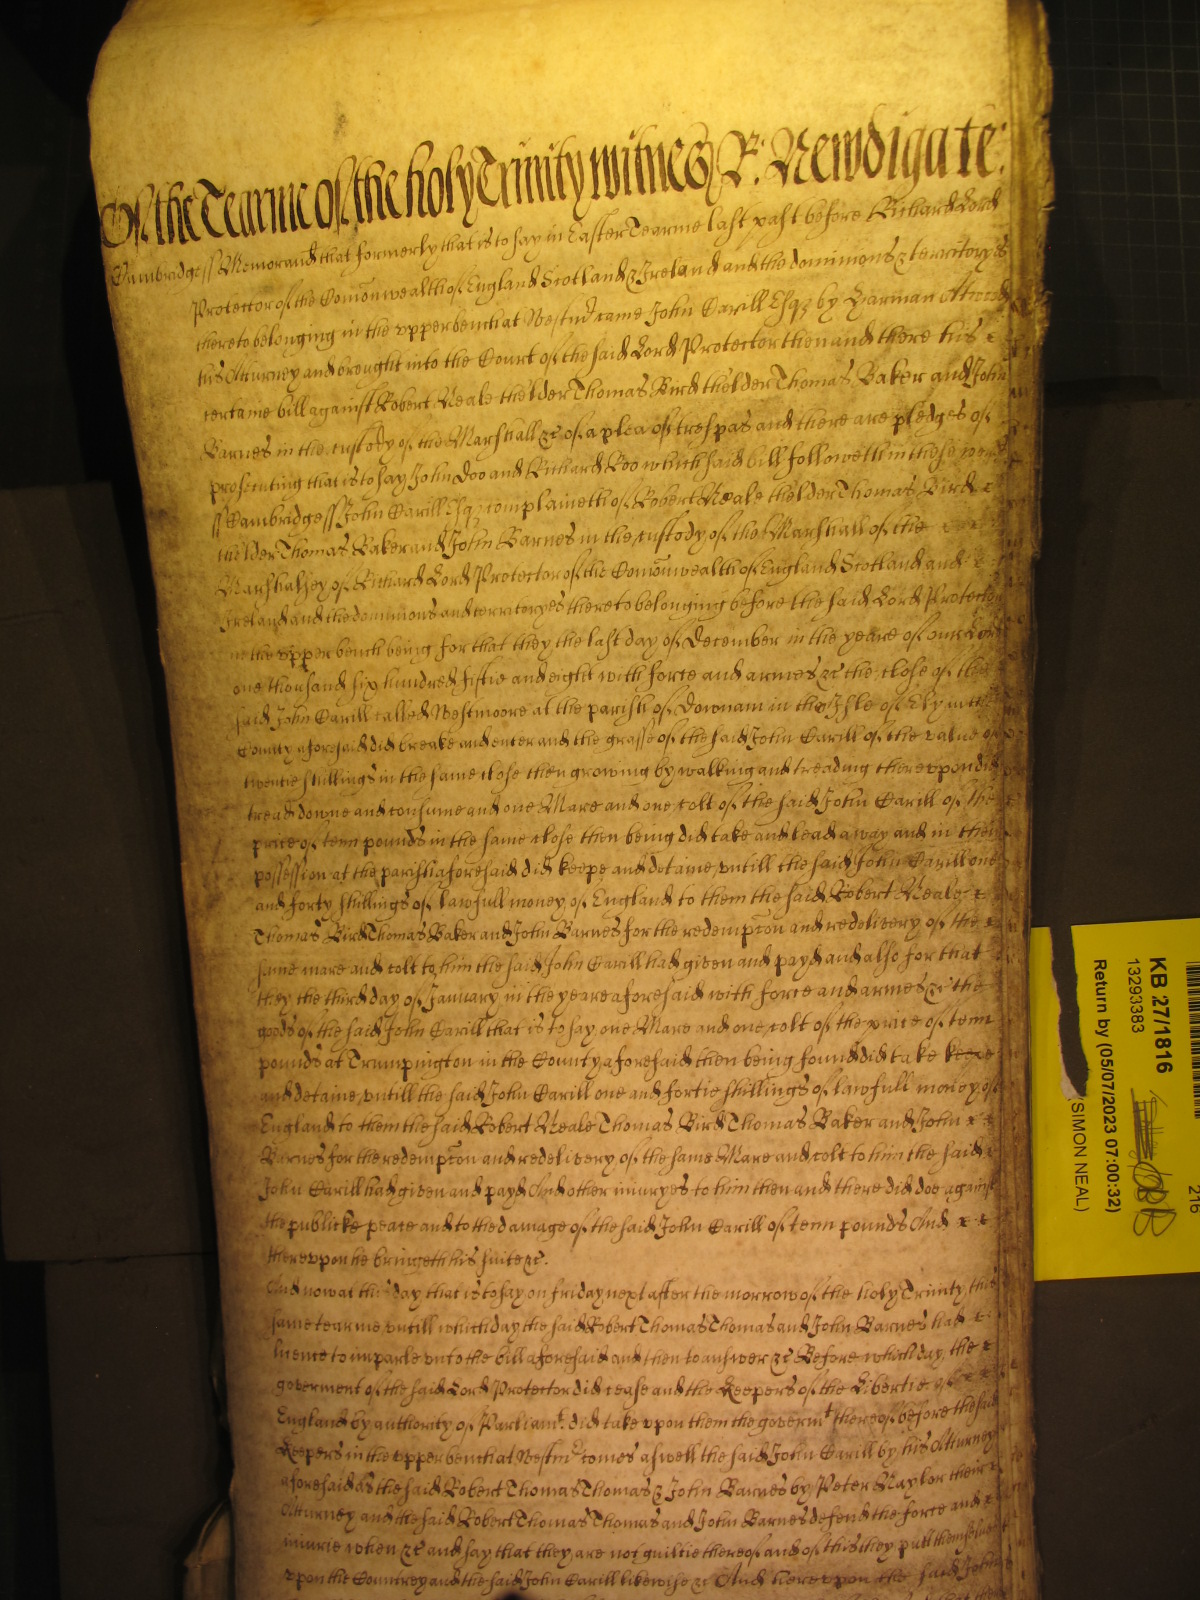 Of the Tearme of the holy Trinity witnes R: Newdigate:
Cambridge ss Memorand that formerly that is to say in Easter Tearme last past before Richard Lord
Protector of the Comonwealth of England Scotland & Ireland and the dominions & territoryes
thereto belonging in the upper bench at Westmr came John Carill Esqz by Harman Atwood
his Atturney and brought into the Court of the said Lord Protector then and there his
certaine bill against Robert Neale thelder Thomas Bird thelder Thomas Baker and John
Barnes in the custody of the Marshall &c of a plea of trespas and there are pledges of
prosecuting that is to say John Doo and Richard Roo which said bill followeth in these words
ss Cambridge ss John Carill Esqz complaineth of Robert Neale thelder Thomas Bird
thelder Thomas Baker and John Barnes in the custody of the Marshall of the
Marshalsey of Richard Lord Protector of the Comonwealth of England Scotland and
Ireland and the dominions and territoryes thereto belonging before the said Lord Protector
in the upper bench being for that they the last day of December in the yeare of our Lord
one thousand six hundred fiftie and eight with force and armes &c the close of the
said John Carill called Westmoore at the parish of Downam in the Isle of Ely in the
County aforesaid did breake and enter and the grasse of the said John Carill of the value of
twentie shillings in the same close then growing by walking and treading thereupon did
tread downe and consume and one Mare and one colt of the said John Carill of the
price of tenn pounds in the same close then being did take and lead away and in their
possession at the parish aforesaid did keepe and detaine untill the said John Carill one
and forty shillings of lawfull money of England to them the said Robert Neale
Thomas Bird Thomas Baker and John Barnes for the redempcon and redelivery of the
same mare and colt to him the said John Carill had given and payd and also for that
they the third day of January in the yeare aforesaid with force and armes &c the
goods of the said John Carill that is to say one Mare and one colt of the price of tenn
pounds at Trumpington in the County aforesaid then being found did take keepe
and detaine untill the said John Carill one and fortie shillings of lawfull money of
England to them the said Robert Neale Thomas Bird Thomas Baker and John
Barnes for the redempcon and redelivery of the same Mare and colt to him the said
John Carill had given and payd And other iniuryes to him then and there did doe against
the publicke peace and to the damage of the said John Carill of tenn pounds And
thereupon he bringeth his suite &c.
And now at this day that is to say on friday next after the morrow of the holy Trinity this
same tearme untill which day the said Robert Thomas Thomas and John Barnes had
licence to imparle unto the bill aforesaid and then to answer &c Before which day the
goverment of the said Lord Protector did cease and the Keepers of the Libertie of
England by authority of Parliamt. did take upon them the govermt thereof before the said
Keepers in the upper bench at Westmr comes aswell the said John Carill by his Atturney
aforesaid as the said Robert Thomas Thomas & John Barnes by Peter Naylor their
Atturney and the said Robert Thomas Thomas and John Barnes defend the force and
iniurie when &c and say that they are not guiltie thereof and of this they putt themselves
upon the Countrey and the said John Carill likewise &c And hereupon the said John
KB 27/1816
13293383
Return by (05/07/2023 07:00:32)
SIMON NEAL)
216